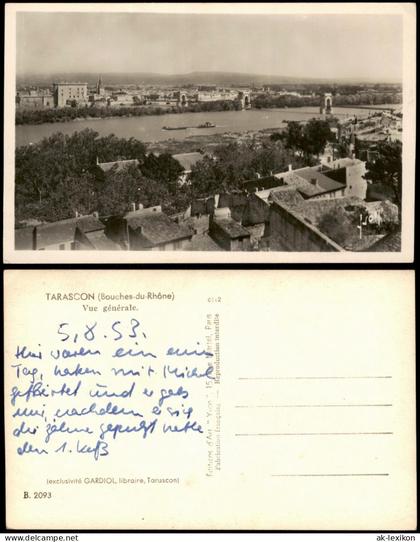 TARASCON (Bouches-du-Rhône)
Vue générale.
5.8.53.
Hier waren ein einen
Tag, haben mit Michel
geflirtet und er gab
mir, nachdem er sich
die Zähne geputzt hatte
den 1. Kuß
(exclusivité GARDIOL, libraire, Tarascon)
B. 2093
Editions d'Art "Yvon"
Fabrication française - Reproduction interdite
ak-lexikon
© ak-lexikon.com